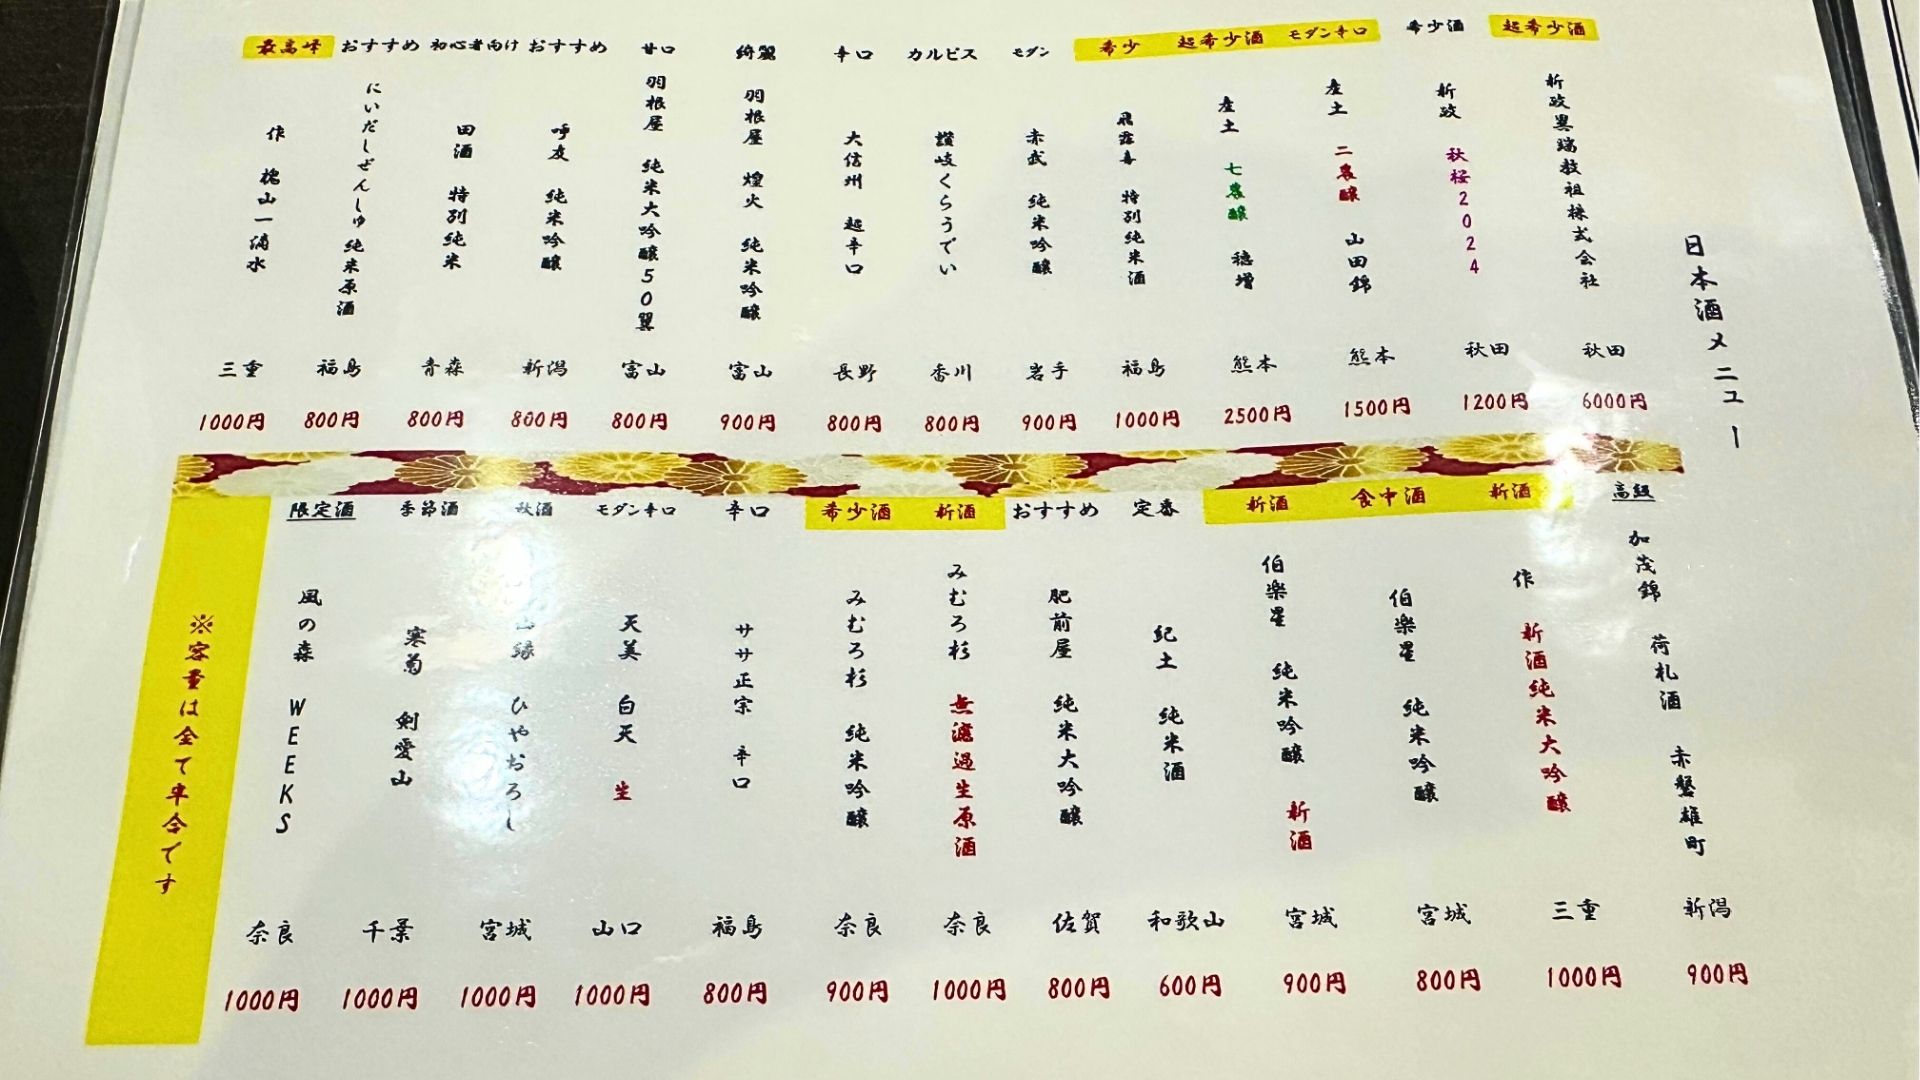 日本酒メニュー
超希少酒
新政異端教祖株式会社
秋田
6000円
希少酒
新政 秋桜2024
秋田
1200円
モダン辛口
産土 二農醸 山田錦
熊本
1500円
超希少酒
産土 七農醸 穂増
熊本
2500円
希少
飛露喜 特別純米酒
福島
1000円
モダン
赤武 純米吟醸
岩手
900円
カルピス
讃岐くらうでぃ
香川
800円
辛口
大信州 超辛口
長野
800円
綺麗
羽根屋 煌火 純米吟醸
富山
900円
甘口
羽根屋 純米大吟醸50翼
富山
800円
おすすめ
呼友 純米吟醸
新潟
800円
初心者向け
田酒 特別純米
青森
800円
おすすめ
にいだしぜんしゅ 純米原酒
福島
800円
最高峰
作 槐山一滴水
三重
1000円
高級
加茂錦 荷札酒 赤磐雄町
新潟
900円
新酒
作 新酒純米大吟醸
三重
1000円
食中酒
伯楽星 純米吟醸
宮城
800円
新酒
伯楽星 純米吟醸 新酒
宮城
900円
定番
紀土 純米酒
和歌山
600円
おすすめ
肥前屋 純米大吟醸
佐賀
800円
新酒
みむろ杉 無濾過生原酒
奈良
1000円
希少酒
みむろ杉 純米吟醸
奈良
900円
辛口
ササ正宗 辛口
福島
800円
モダン辛口
天美 白天 生
山口
1000円
秋酒
縁 ひやおろし
宮城
1000円
季節酒
寒菊 剣愛山
千葉
1000円
限定酒
風の森 WEEKS
奈良
1000円
※容量は全て半合です